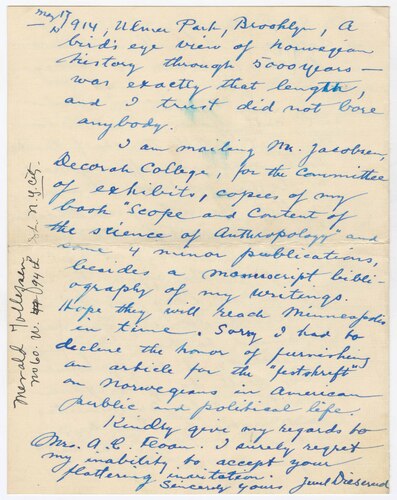 May 17
1914, Ulmer Park, Brooklyn, A
bird's eye view of Norwegian
history through 5000 years —
was exactly that length,
and I trust did not bore
anybody.
I am mailing Mr. Jacobsen,
Decorah College, for the Committee
of exhibits, copies of my
book "Scope and Content of
the science of Anthropology" and
some 4 minor publications,
besides a manuscript bibli-
ography of my writings.
Hope they will reach Minneapolis
in time. Sorry I had to
decline the honor of furnishing
an article for the "festskrift"
on Norwegians in American
public and political life.
Kindly give my regards to
Mrs. A. C. Floan. I surely regret
my inability to accept your
flattering invitation.
Sincerely yours Juul Dieserud
no 60. W. 94th St. N.Y. City.